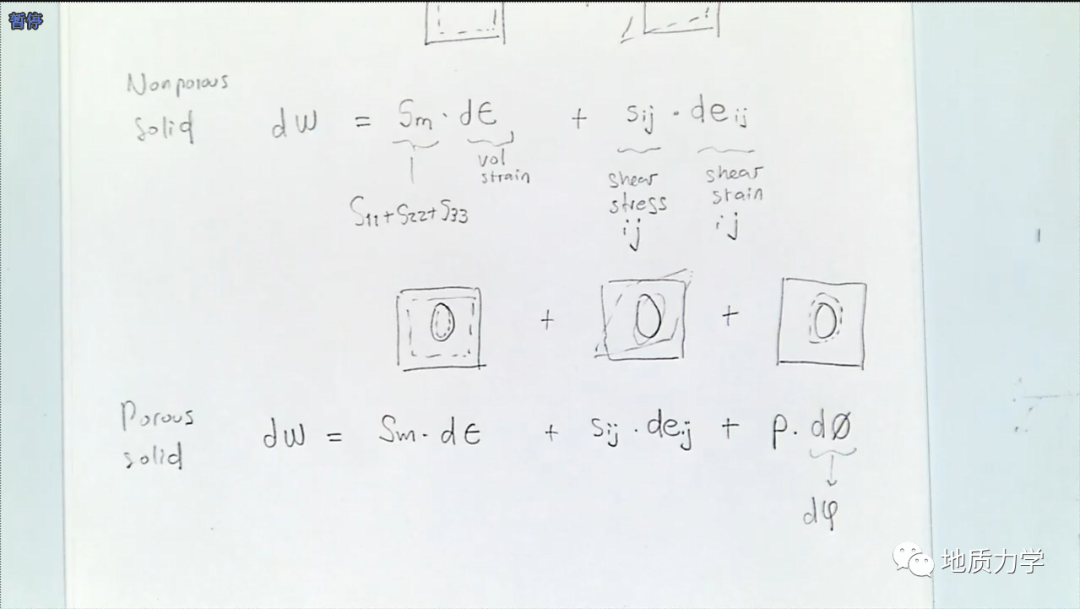 暂停
Nonporous
solid dW = Sm · dϵ + sij · deij
vol
strain
shear
stress
ij
shear
stain
ij
S11+S22+S33
+ +
Porous
solid dW = Sm · dϵ + sij · deij + p · dØ
dφ
地质力学